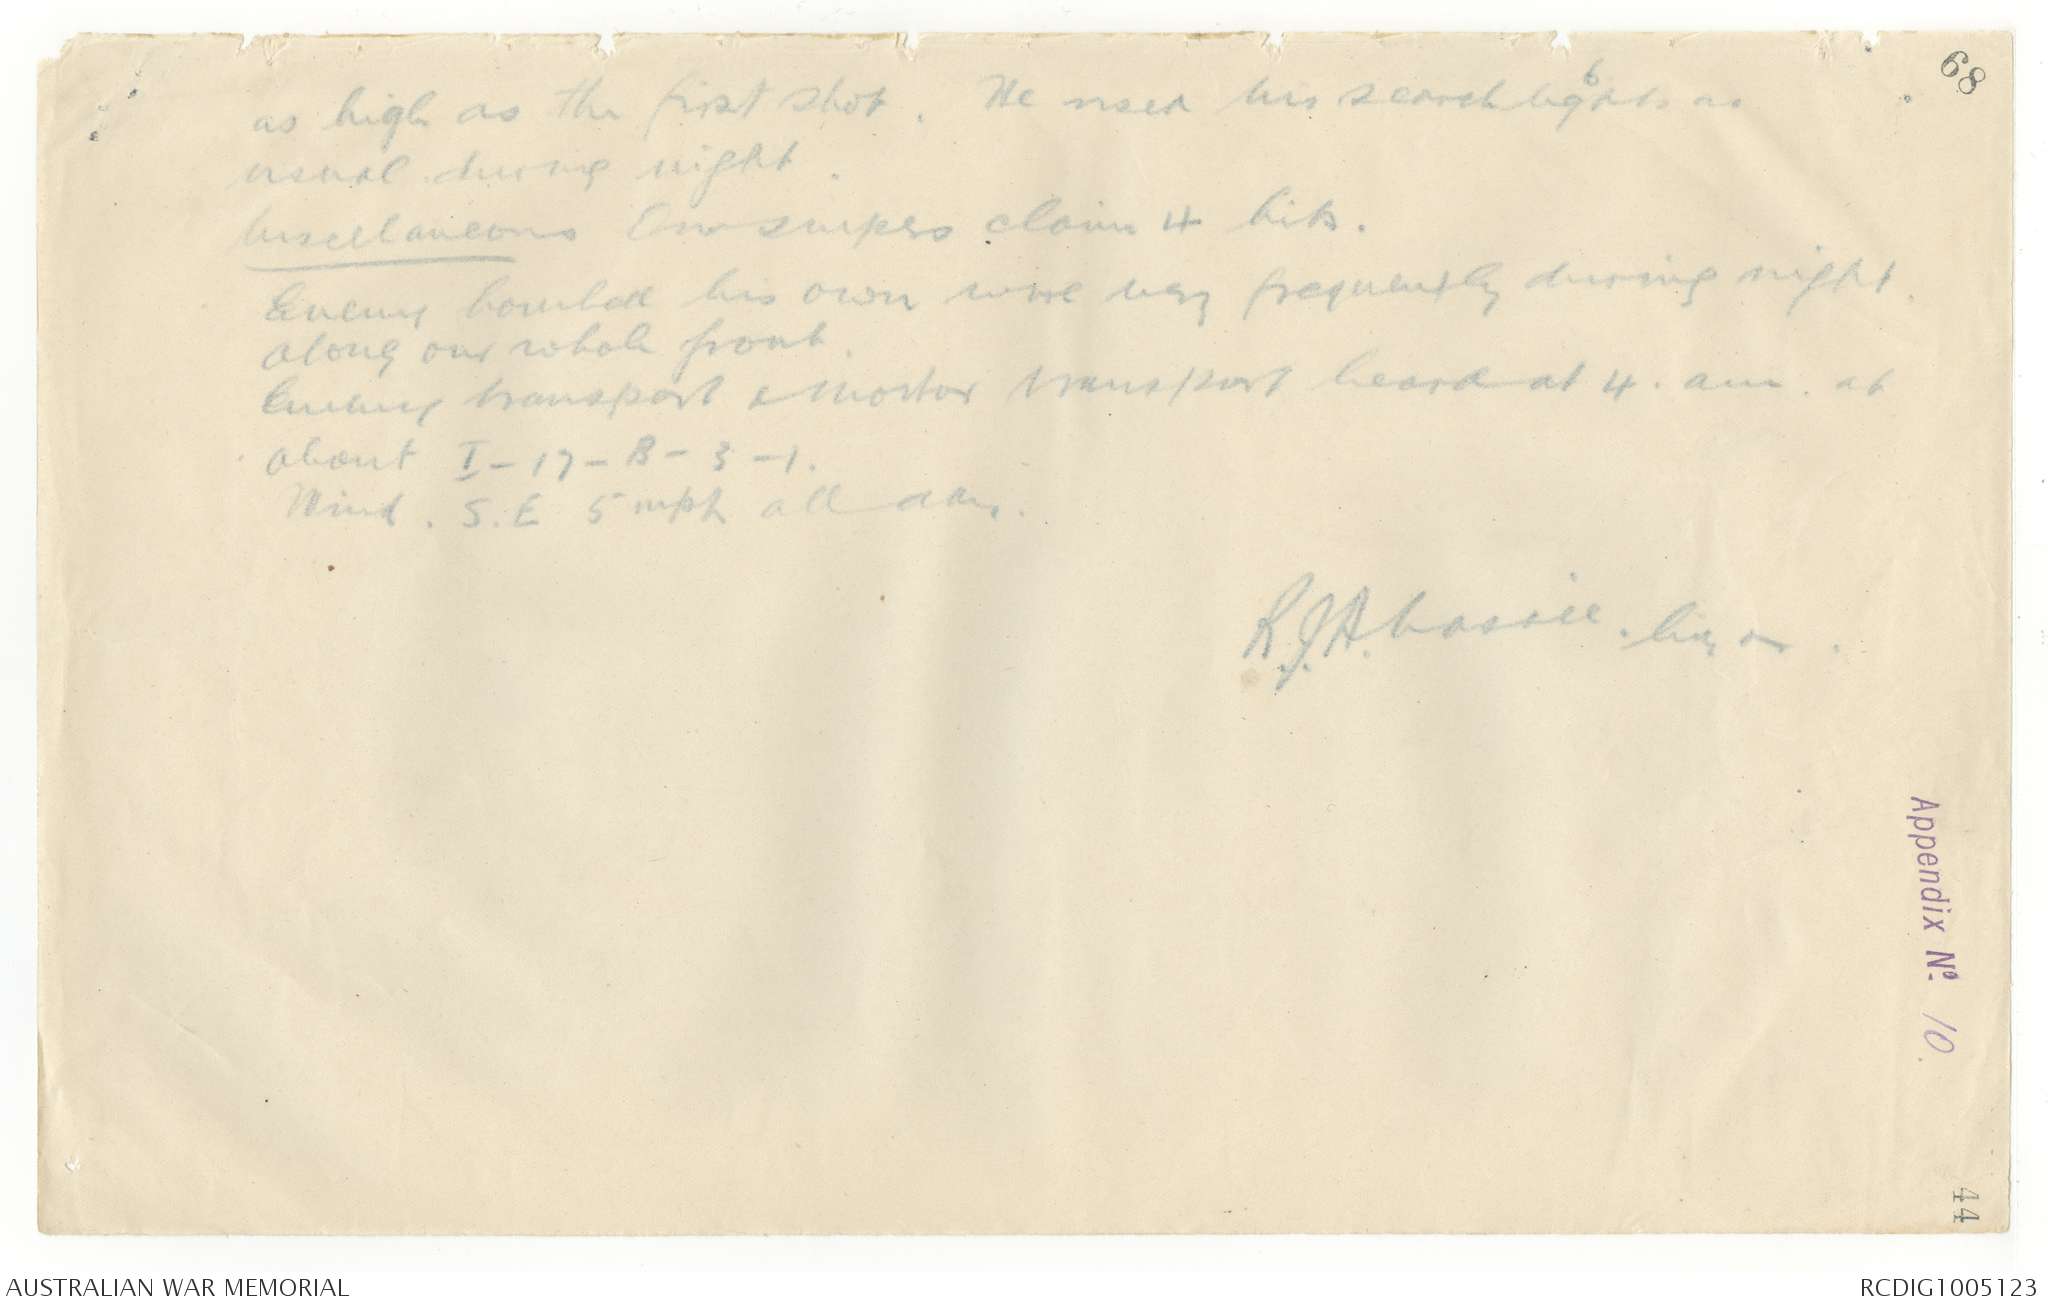 68
6
as high as the first shot. He used his searchlights as
usual during night.
Miscellaneous Our snipers claim 4 hits.
Enemy bombed his own wire very frequently during night.
along our whole front.
Enemy transport & Mortor transport heard at 4. am. at
about I-17-B-3-1.
Wind. S.E 5 mph all day.
R.J.A.
Appendix No. 10.
44
AUSTRALIAN WAR MEMORIAL
RCDIG1005123